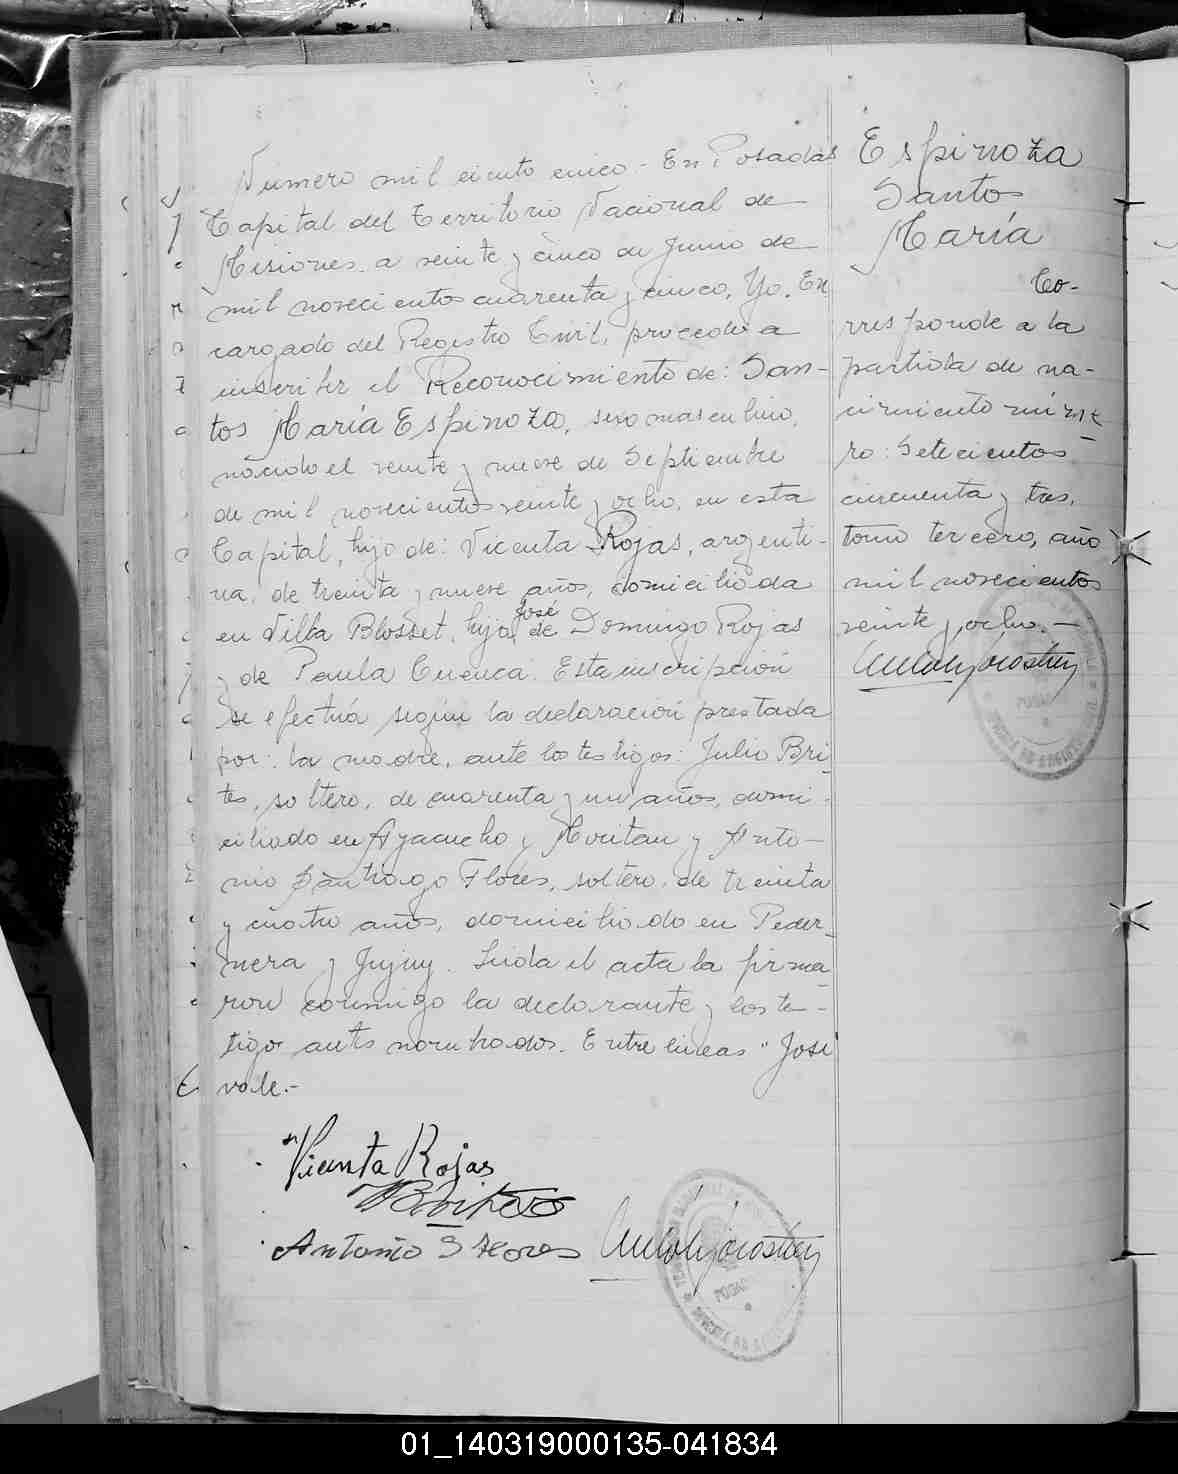 Número mil ciento cinco. En Posadas
Capital del Territorio Nacional de
Misiones, a veinte y cinco de Junio de
mil novecientos cuarenta y cinco, Yo, En
cargado del Registro Civil, procedo a
inscribir el Reconocimiento de: San-
tos María Espinoza, sexo masculino,
nacido el veinte y nueve de Septiembre
de mil novecientos veinte y ocho, en esta
Capital, hijo de: Vicenta Rojas, argenti-
na, de treinta y nueve años, domiciliada
José
en Villa Blosset, hija de Domingo Rojas
y de Paula Cuenca. Esta inscripción
se efectúa según la declaración prestada
por: la madre, ante los testigos: Julio Bri-
tes, soltero, de cuarenta y un años, domi-
ciliado en Ayacucho y y Anto-
nio Santiago Flores, soltero, de treinta
y cuatro años, domiciliado en Peder-
nera y Jujuy. Leída el acta la firma-
ron conmigo la declarante y los te-
tigo antes nombrados. Entre lineas "José
vale.-
Vicenta Rojas
Antonio S Flores
Espinoza
Santos
María
Co-
rresponde a la
partida de na-
cimiento núme-
ro: Setecientos
cincuenta y tres,
tomo tercero, año
mil novecientos
veinte y ocho.-
01_140319000135-041834